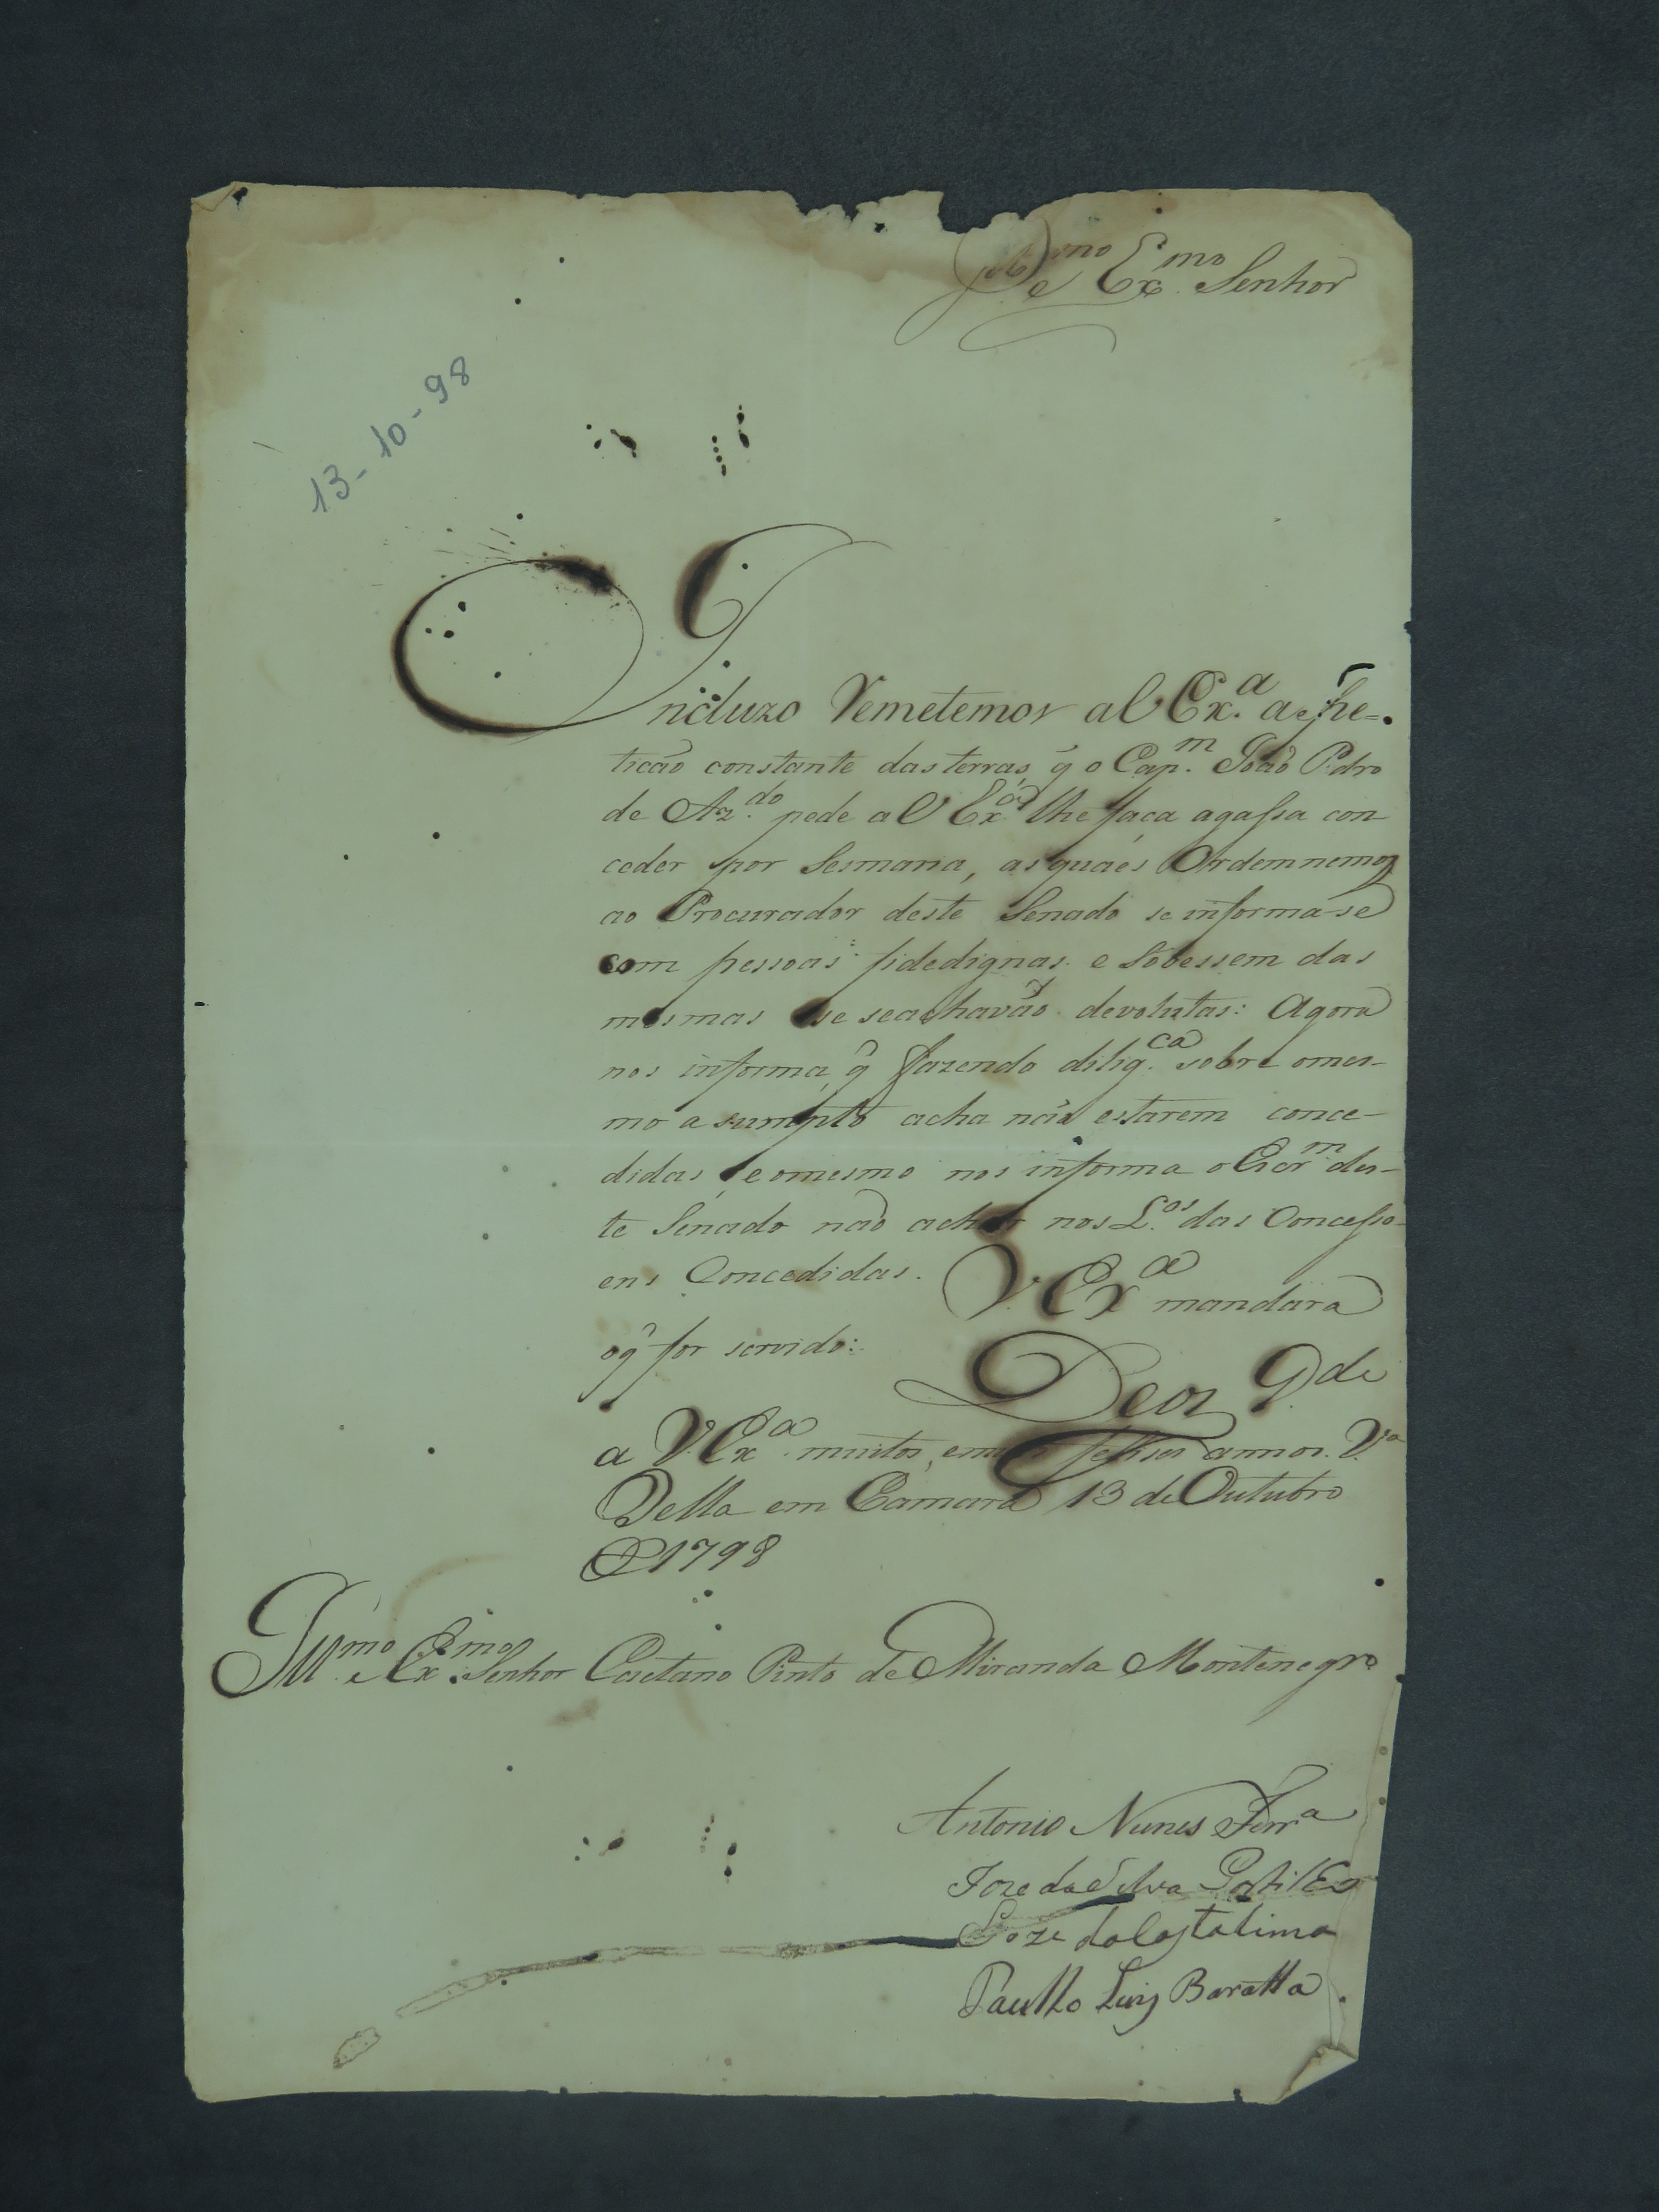 Ill.mo e Ex.mo Senhor
13-10-98
Incluzo Remetemos a V Ex.a a Pe=
ticão constante das terras, q̃ o Cap.m João Pedro
de Az.do pede a V Ex.a lhe faça agassa con
ceder por Sesmaria, as quaes Ordemnemos
ao Procurador deste Senado se informá-se
com pessoas fidedignas e Sobessem das
mesmas se se achavão devolutas: Agora
nos informa, q̃ fazendo dilig.ca sobre omes-
mo a sumpto acha não estarem conce-
didas, e omesmo nos informa o Escr.m des-
te Senado não achar nos L.os das Concesso-
ens Concedidas. V. Ex.a mandara
oq̃ for servido:
Deos G.de
a V. Ex.a muitos, emui felises annos. V.a
Bella em Camara 13 de Outubro
D 1798
Ill.mo e Ex.mo Senhor Caetano Pinto de Miranda Montenegro
Antonio Nunes Ferr.a
Joze da Silva
Joze da Costa Lima
Paullo Luiz Baratta